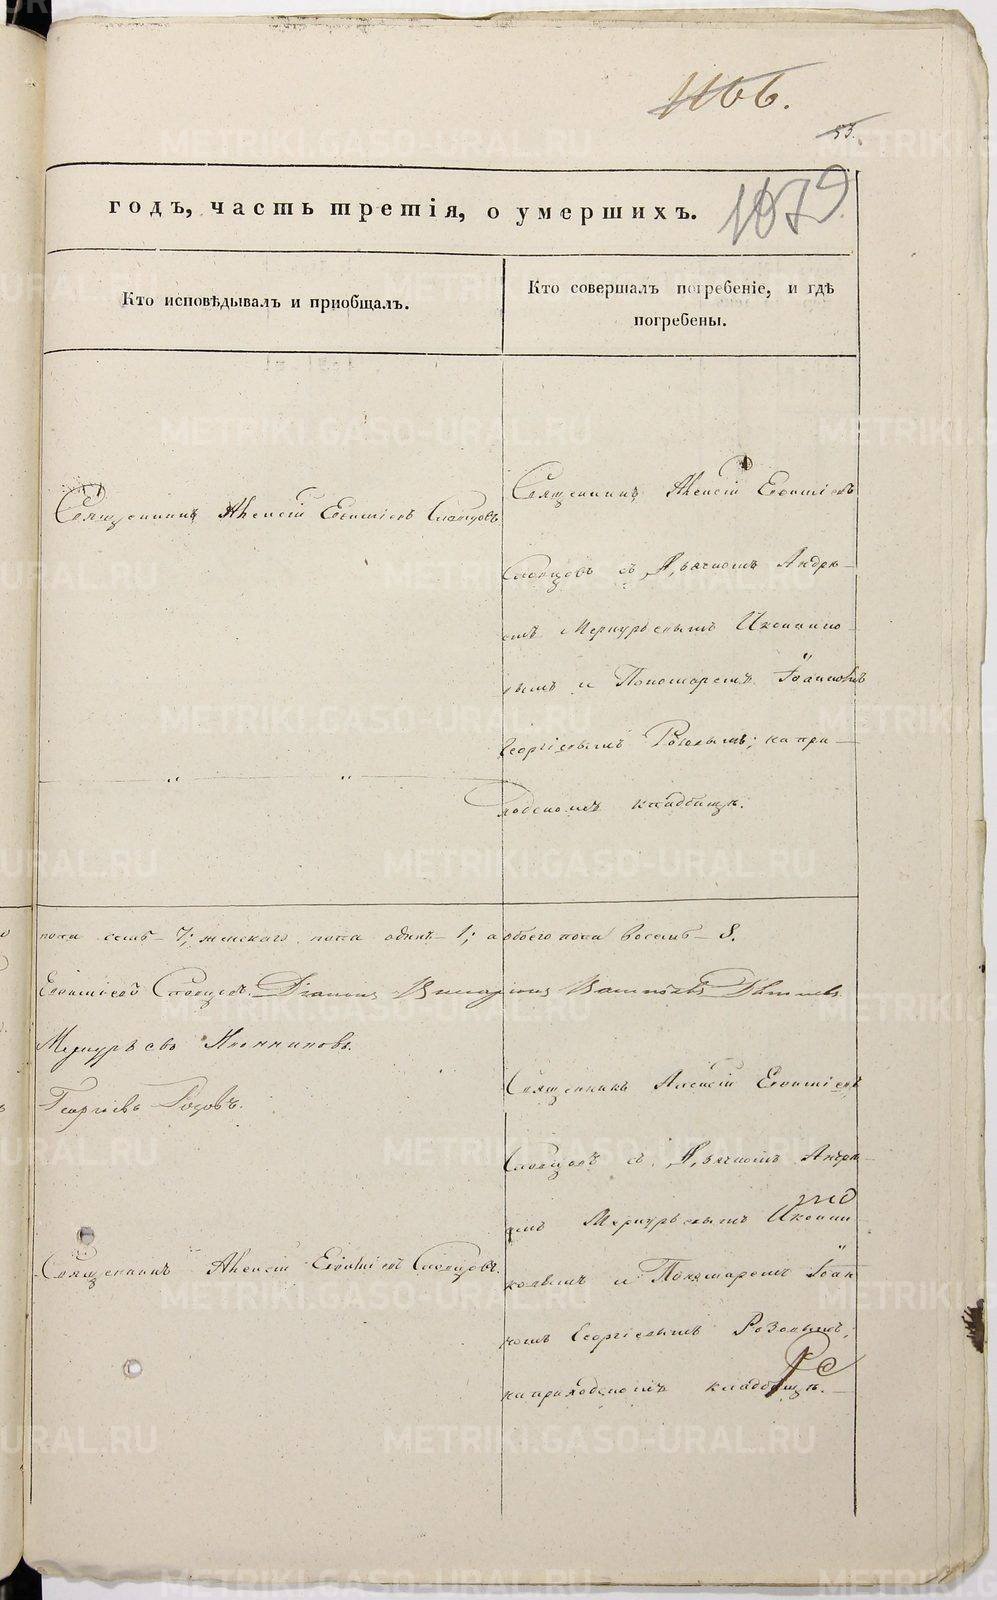 1166.
53.
годъ, часть третія, о умершихъ.
1079
Кто исповѣдывалъ и пріобщалъ.
Кто совершалъ погребеніе, и гдѣ
погребены.
Священникъ Алексій Евѳиміевъ Словцовъ
Священникъ Алексій Евѳиміевъ
Словцовъ съ Дьячкомъ Андре-
емъ Меркурьевымъ Иконнико-
вымъ и Пономаремъ Іоанномъ
Георгіевымъ Розовымъ; на при-
ходскомъ кладбищѣ.
пола семь - 7; женскаго пола одинъ - 1; а обоего пола восемь - 8.
Евѳиміевъ Словцовъ. Діаконъ
Меркурьевъ Иконниковъ.
Георгіевъ Розовъ.
Священникъ Алексій Евѳиміевъ Словцовъ.
Священникъ Алексій Евѳиміевъ
Словцовъ съ Дьячкомъ Андре-
емъ Меркурьевымъ Иконни
ковымъ и Пономаремъ Іоан
номъ Георгіевымъ Розовымъ;
на приходскомъ кладбищѣ.
METRIKI.GASO-URAL.RU